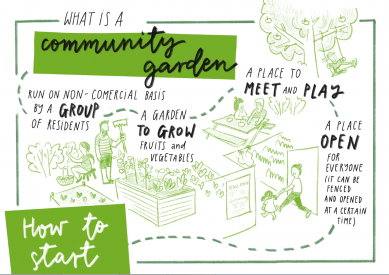 WHAT IS A
community
garden
RUN ON NON-COMERCIAL BASIS
BY A GROUP
OF RESIDENTS
A GARDEN
TO GROW
FRUITS and
VEGETABLES
A PLACE TO
MEET AND PLAY
A PLACE
OPEN
FOR
EVERYONE
(IT CAN BE
FENCED
AND OPENED
AT A CERTAIN
TIME)
How to
start